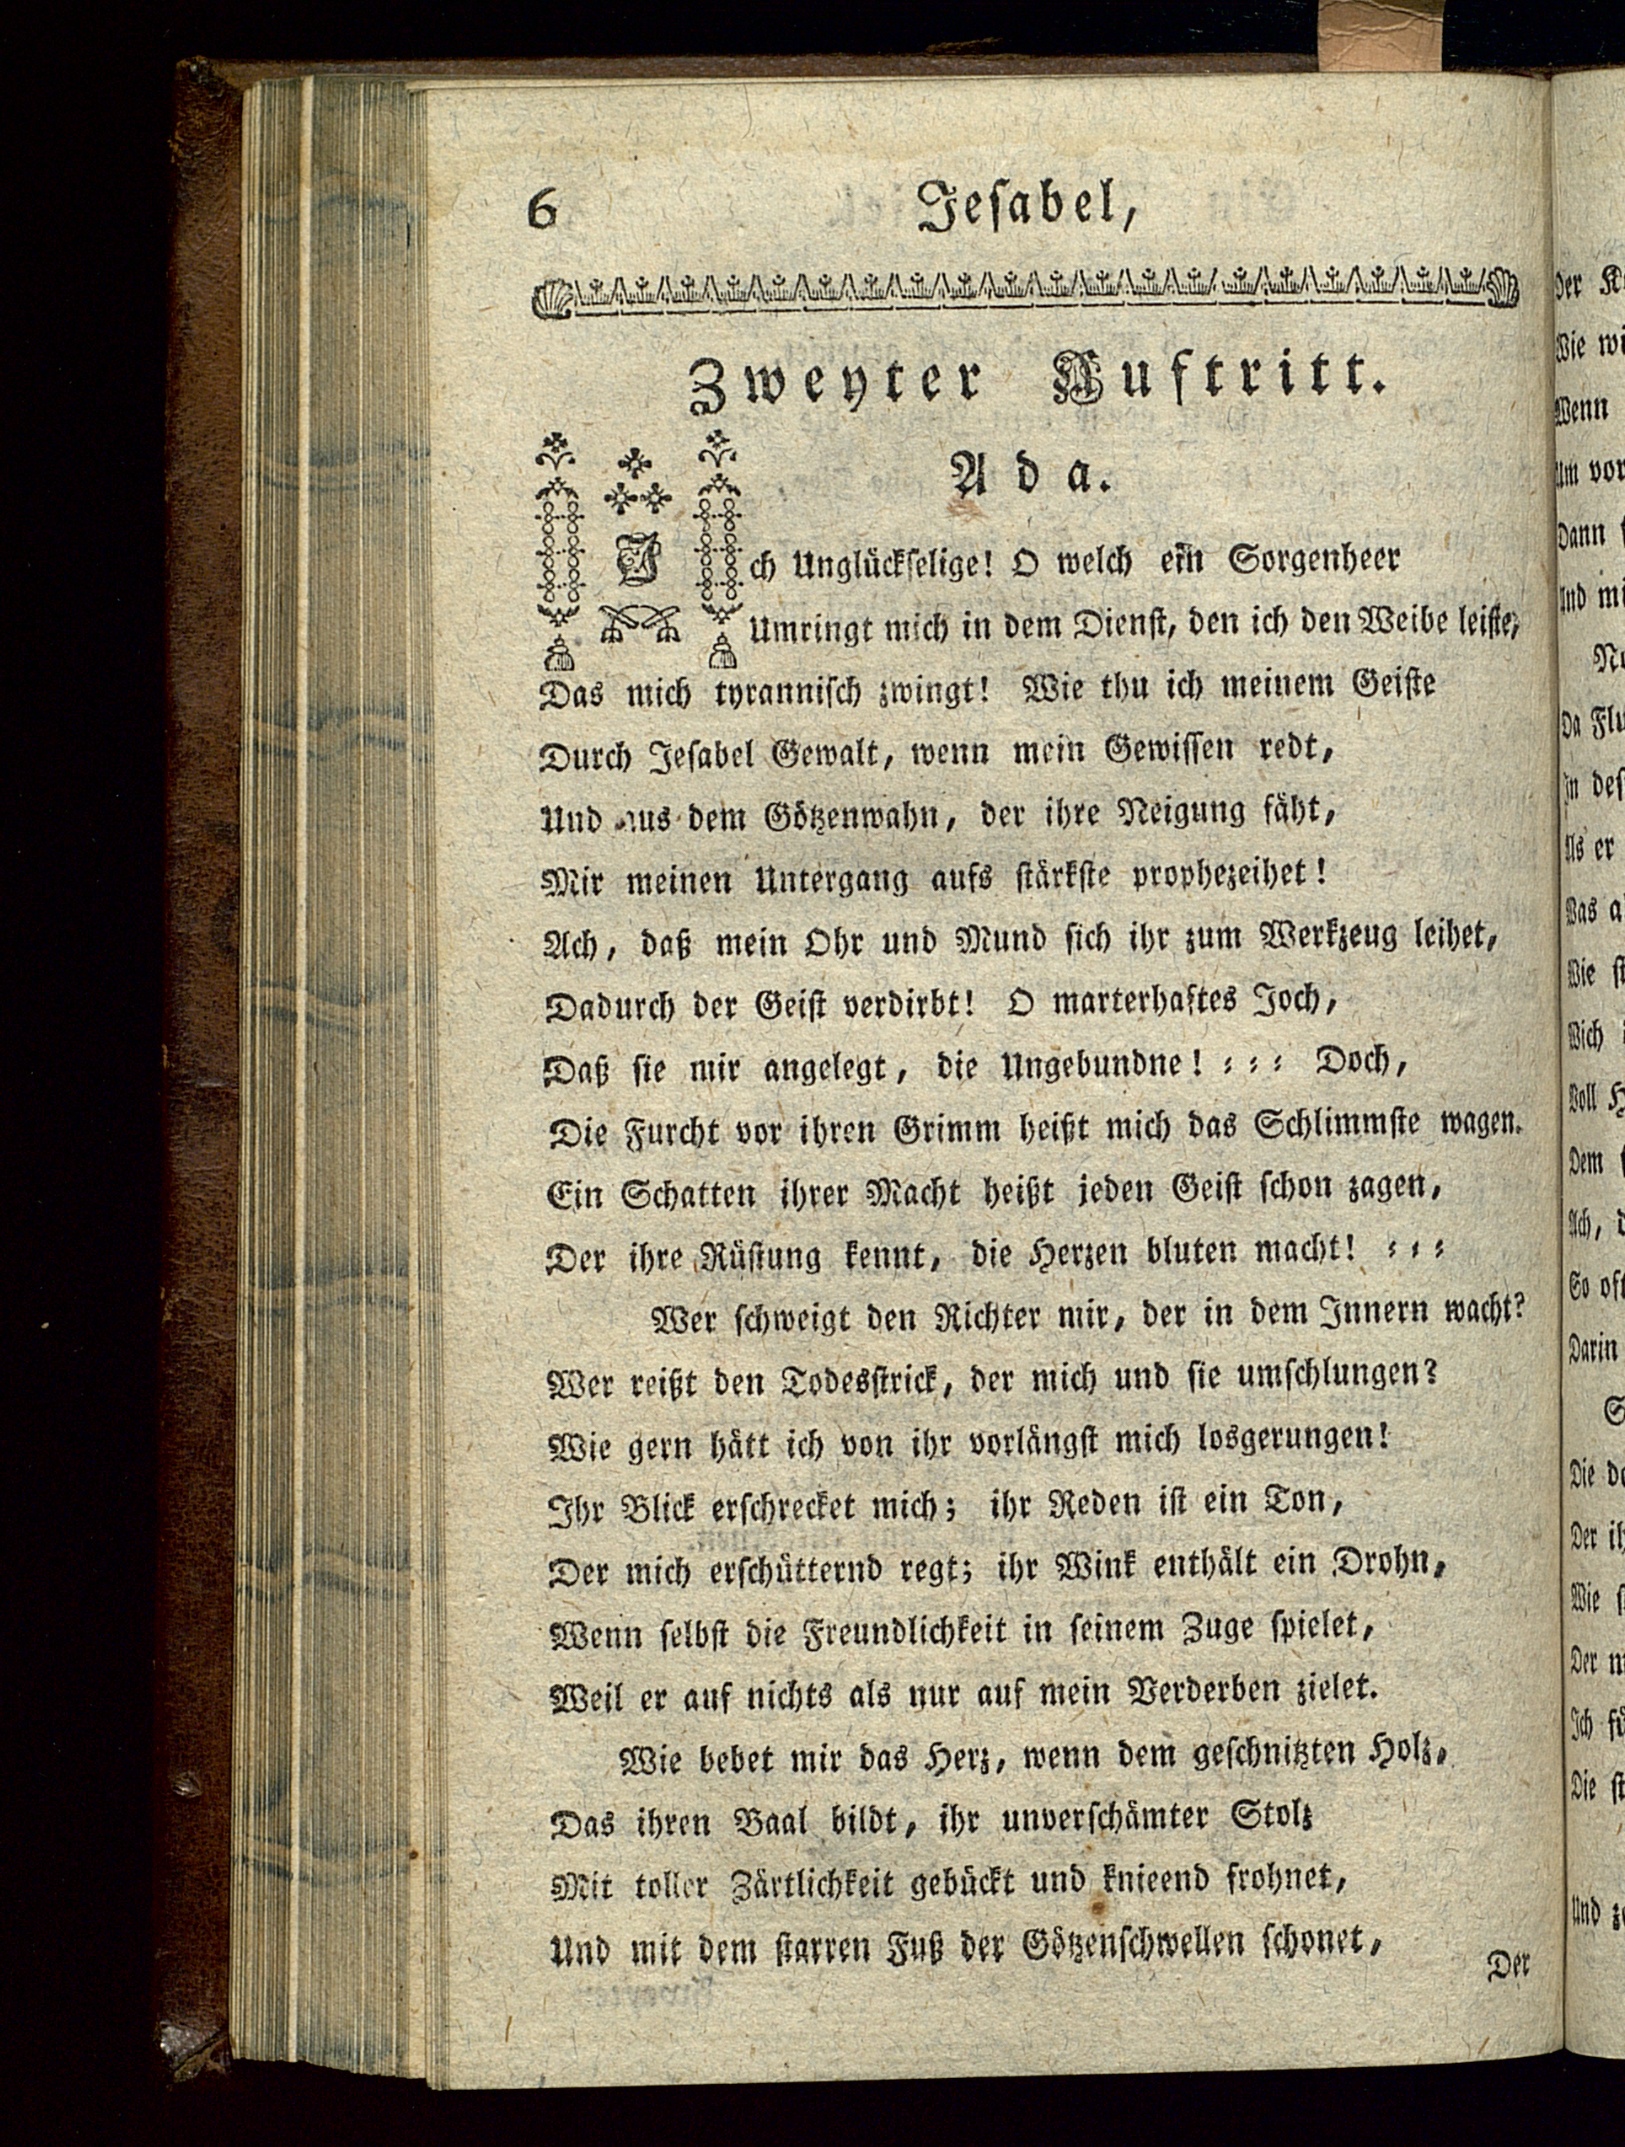 6
Jeſabel,
Zweyter Auftritt.
Ada.
Ich Unglückſelige! O welch ein Sorgenheer
Umringt mich in dem Dienſt, den ich den Weibe leiſte,
Das mich tyranniſch zwingt! Wie thu ich meinem Geiſte
Durch Jeſabel Gewalt, wenn mein Gewiſſen redt,
Und aus dem Götzenwahn, der ihre Neigung fäht,
Mir meinen Untergang aufs ſtärkſte prophezeihet!
Ach, daß mein Ohr und Mund ſich ihr zum Werkzeug leihet,
Dadurch der Geiſt verdirbt! O marterhaftes Joch,
Daß ſie mir angelegt, die Ungebundne! ⸗ ⸗ ⸗ Doch,
Die Furcht vor ihren Grimm heißt mich das Schlimmſte wagen.
Ein Schatten ihrer Macht heißt jeden Geiſt ſchon zagen,
Der ihre Rüſtung kennt, die Herzen bluten macht! ⸗ ⸗ ⸗
Wer ſchweigt den Richter mir, der in dem Innern wacht?
Wer reißt den Todesſtrick, der mich und ſie umſchlungen?
Wie gern hätt ich von ihr vorlängſt mich losgerungen!
Ihr Blick erſchrecket mich; ihr Reden iſt ein Ton,
Der mich erſchütternd regt; ihr Wink enthält ein Drohn,
Wenn ſelbſt die Freundlichkeit in ſeinem Zuge ſpielet,
Weil er auf nichts als nur auf mein Verderben zielet.
Wie bebet mir das Herz, wenn dem geſchnitzten Holz,
Das ihren Baal bildt, ihr unverſchämter Stolz
Mit toller Zärtlichkeit gebückt und knieend frohnet,
Und mit dem ſtarren Fuß der Götzenſchwellen ſchonet,
Der
der
Wie
Wenn
Um vor
Dann
Und
Da
In
Als er
Was
Wie
Mich
Voll
Dem
Ach,
So
Darin
Die
Der
Wie
Der
Ich
Die
Und